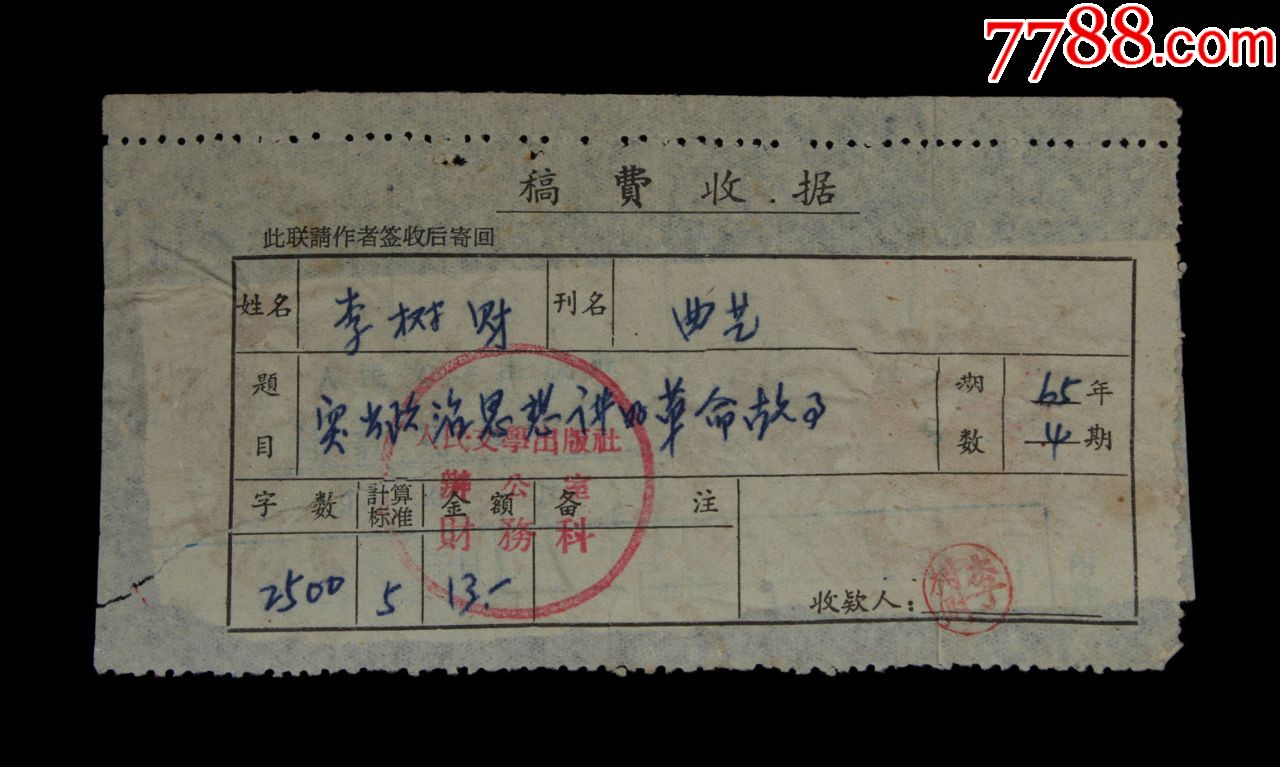 7788.com
稿費收.据
此联請作者签收后寄回
姓名 李树财 刊名 曲艺
題目 突出政治思想讲的革命故事 期数 65年4期
人民文學出版社
辦公室
財務科
字数 計算标准 金額 备注
2500 5 13.-
收欵人：
李树财